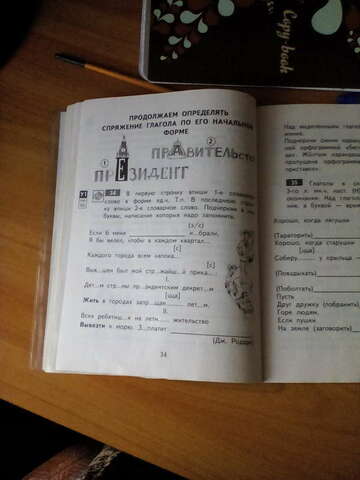 Copy book
ПРОДОЛЖАЕМ ОПРЕДЕЛЯТЬ
СПРЯЖЕНИЕ ГЛАГОЛА ПО ЕГО НАЧАЛЬНОЙ
ФОРМЕ
1 2
ПРЕЗИДЕНТ ПРАВИТЕЛЬСТВО
34 В первую строчку впиши 1-е словарное
слово в форме ед.ч. Т.п. В последнюю строч-
ку впиши 2-е словарное слово. Подчеркни в них
буквы, написание которых надо запомнить.
[з/с]
Если б меня и...брали,
Я бы велел, чтобы в каждом квартал...
[с]
Каждого города всем напока...
[с]
Выж...лен был мой стр...жайш...й прика...
I.
Дет...м стр...ны пр...зидентским декрет...м
[ща]
Жить в городах запр...щаю летом
II.
Всех ребятиш...к на лети... жительство
Вывезти к морю. З...платит
(Дж. Родари)
34
Над выделенными глаголами
Подчеркни синим карандашом
орфограммой
Жёлтым карандашом
пропущена орфограмма
приставке».
35 Глаголы в скобках
3-го л. мн.ч. наст.
Над
в скобках
Хорошо, когда лягушки
(Тараторить)
Хорошо, когда старушки
[ща]
Собиру... у крыльца
(Повздыхать)
(Поболтать)
Пусть
Друг дружку (побранить)
Горе людям,
Если пушки
На земле (заговорить)